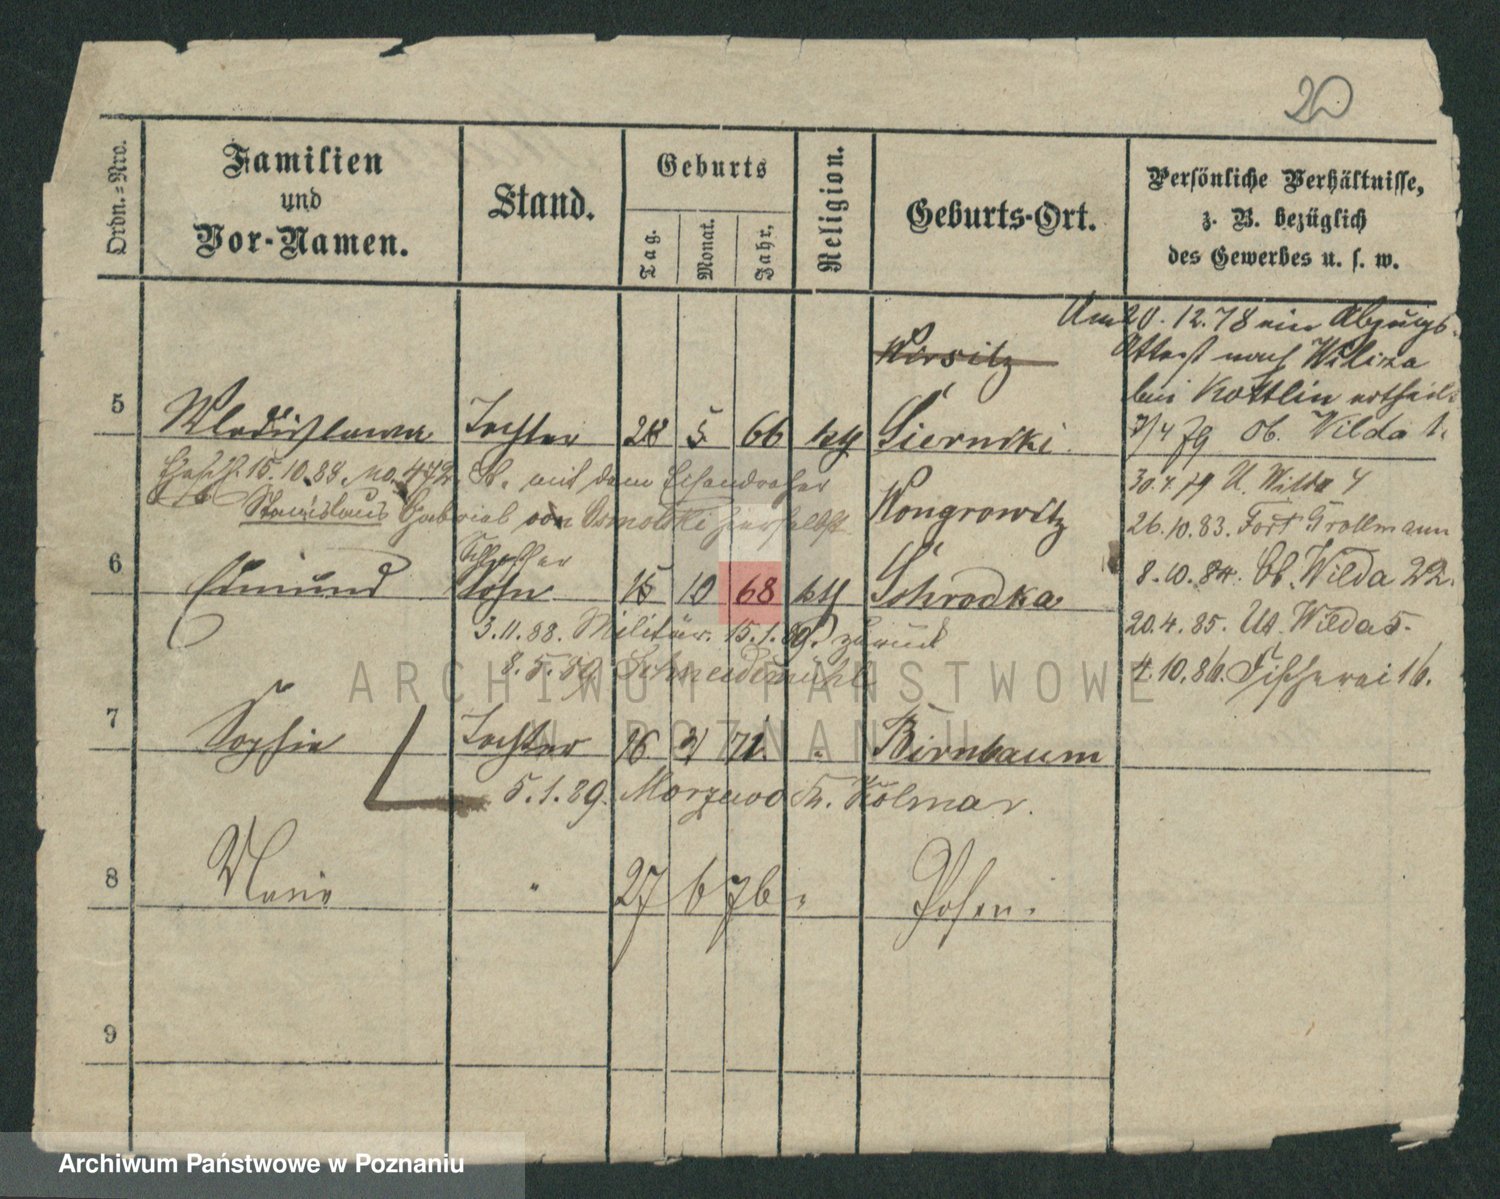 20
Ordn.=Nro.
Familien
und
Vor-Namen.
Stand.
Geburts
Tag.
Monat.
Jahr.
Religion.
Geburts-Ort.
Persönliche Verhältnisse,
z. B. bezüglich
des Gewerbes u. s. w.
Am 20. 12. 78 ein Abzugs-
Attest nach Wiliza
bei Kottlin ertheilt
7/4 79 Ob. Wilda 1.
30.7.79 U. Wilda 4
26.10.83. Fort Grollmann
8.10.84. Ob. Wilda 22.
20.4.85. Ut. Wilda 5.
4.10.86. Fischerei 16.
Wirsitz
5 Wladislawa Tochter 28 5. 66 kth Sierniki.
15.10.88. No. 472 St. mit dem Eisendreher
Stanislaus Gabriel von Osmolski hierselbst
Wongrowitz
Schlosser
6 Edmund Sohn 15 10 68 kth Schrodka
3.11.88. Militär. 15.1.89. zurück
8.5.89. Schneidemühl
7 Sophie Tochter 16 4 71. " Birnbaum
5.1.89. Morzewo Kr. Kolmar.
8 Marie " 27 6 76 " Posen.
9
ARCHIWUM PAŃSTWOWE
W POZNANIU
Archiwum Państwowe w Poznaniu